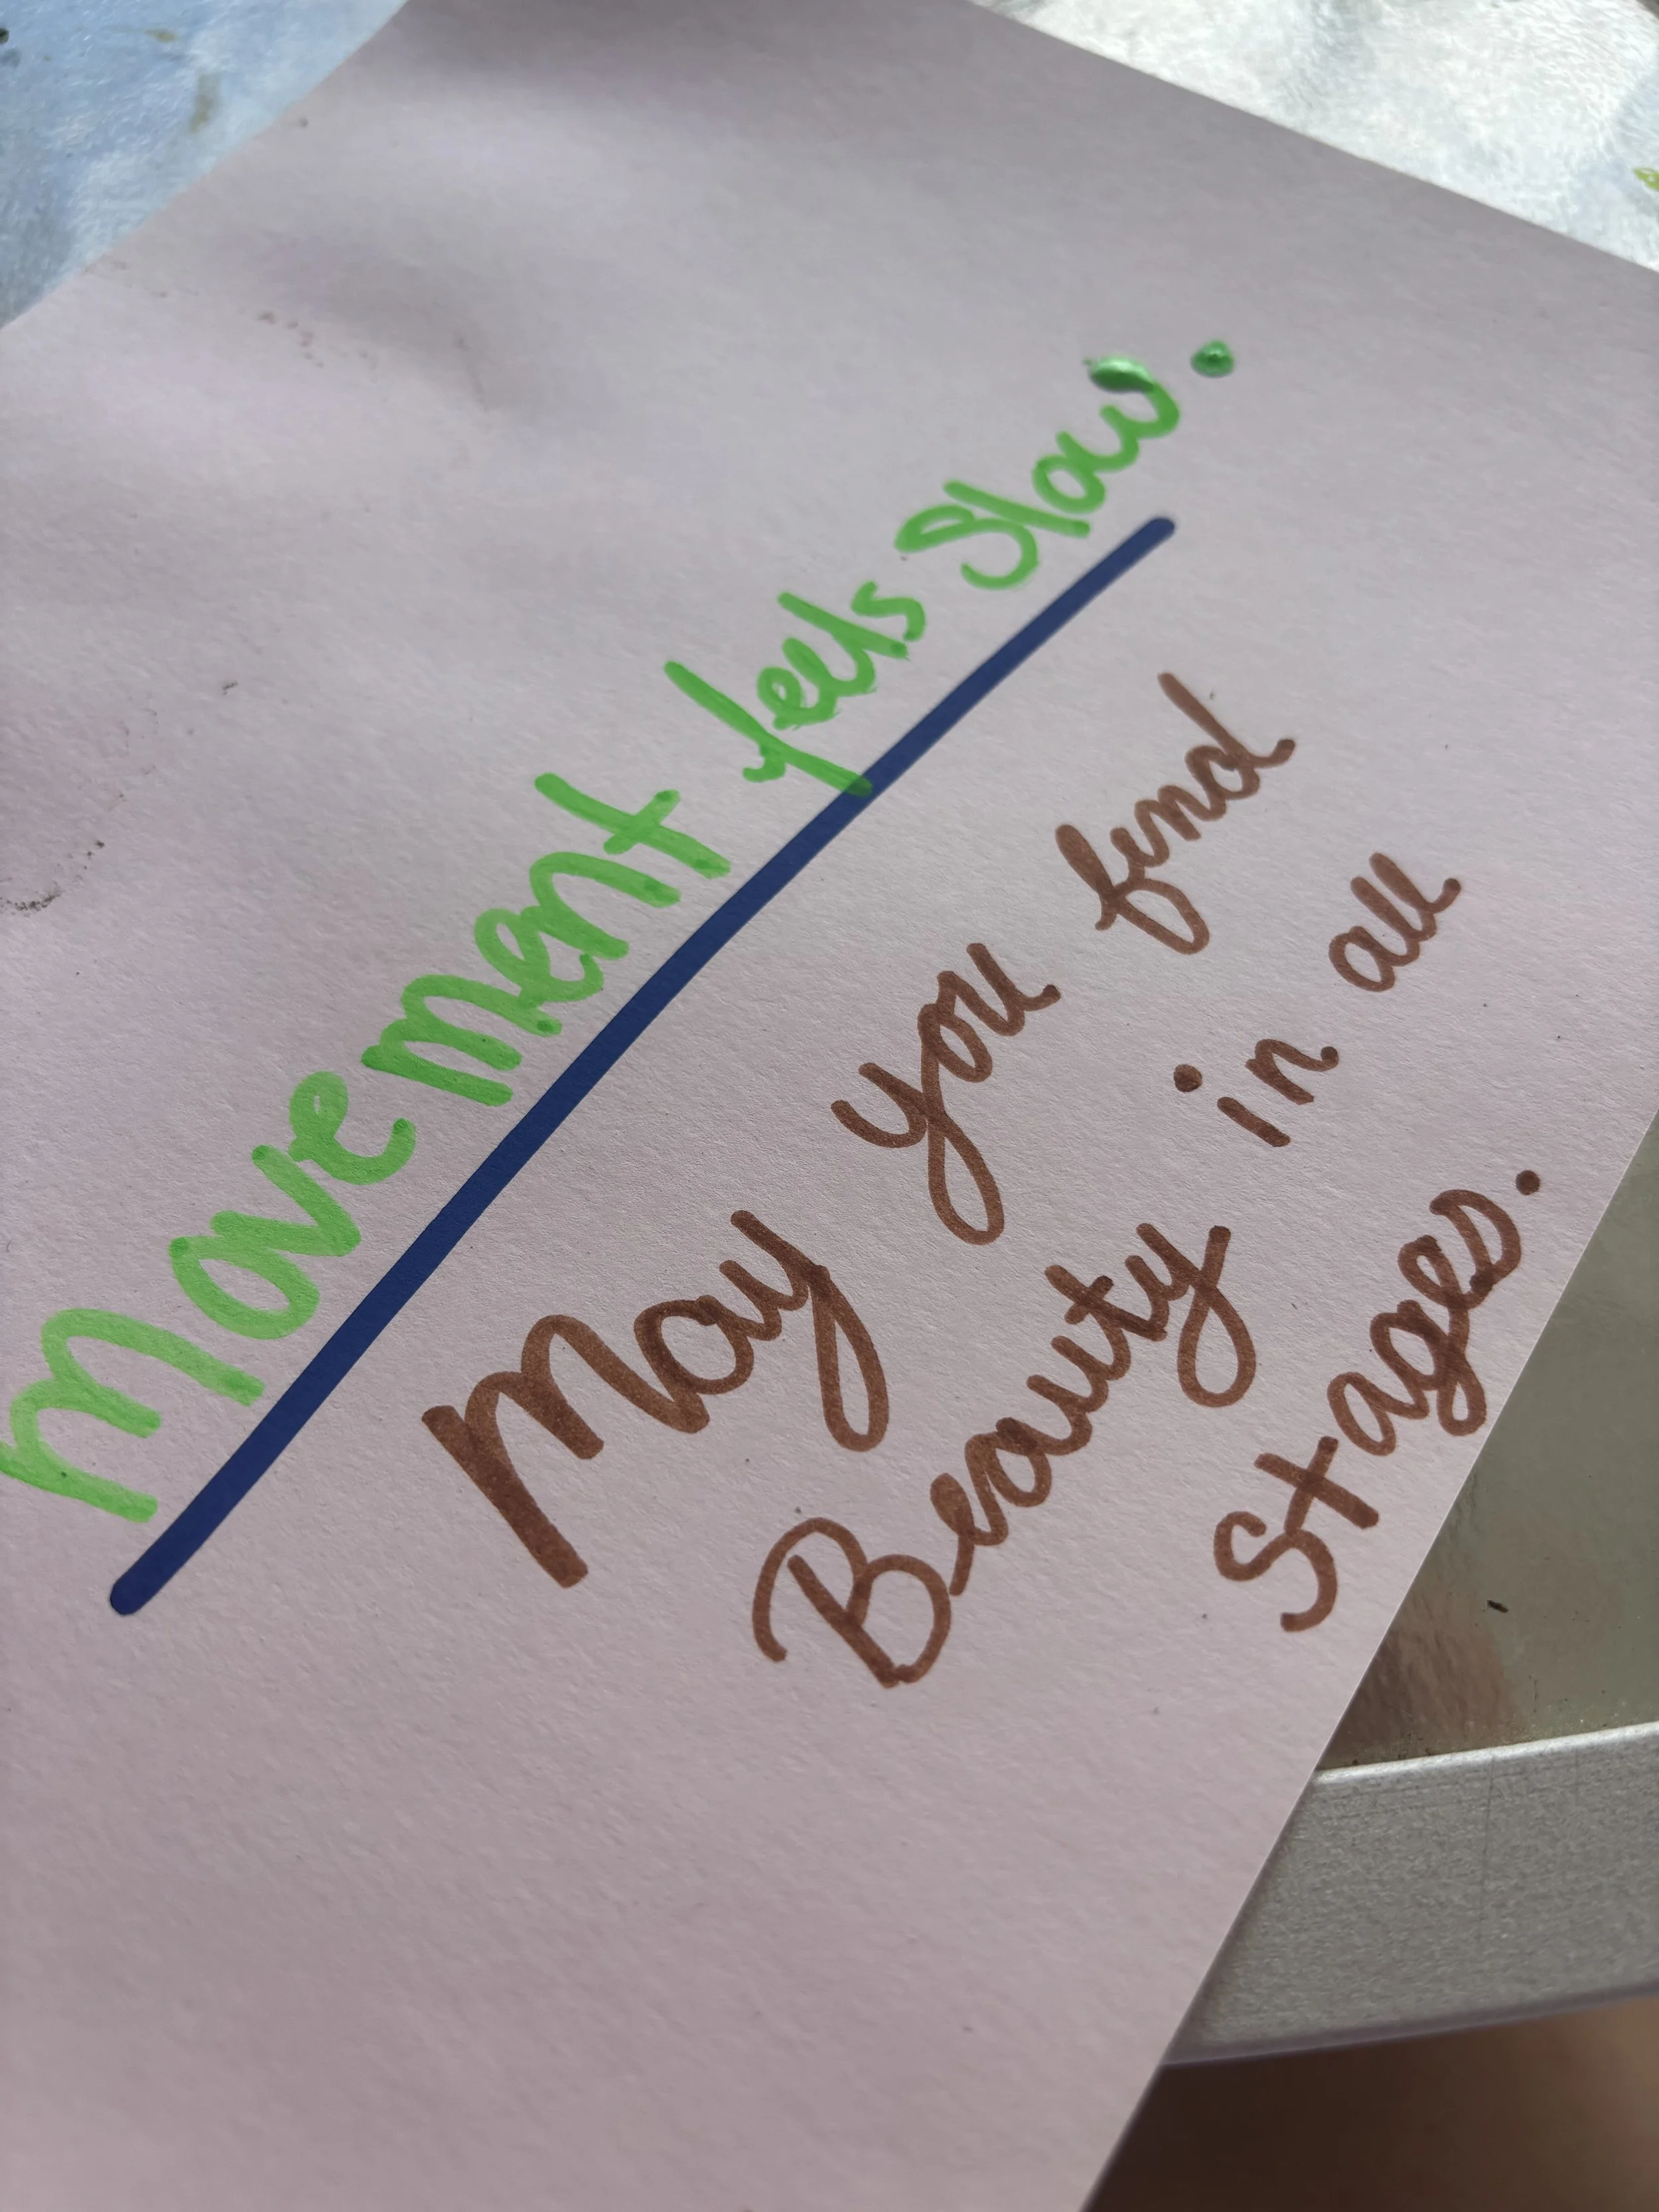 Movement feels Slow.
May you find
Beauty in all
Stages.